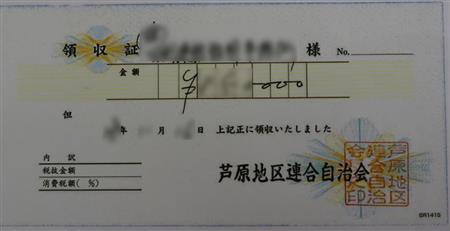 領収証 様 No.
金額 ¥ 000
但
年 月 日 上記正に領収いたしました
内訳
税抜金額
消費税額(%)
芦原地区連合自治会
芦原地区連合自治会之印
GR1415